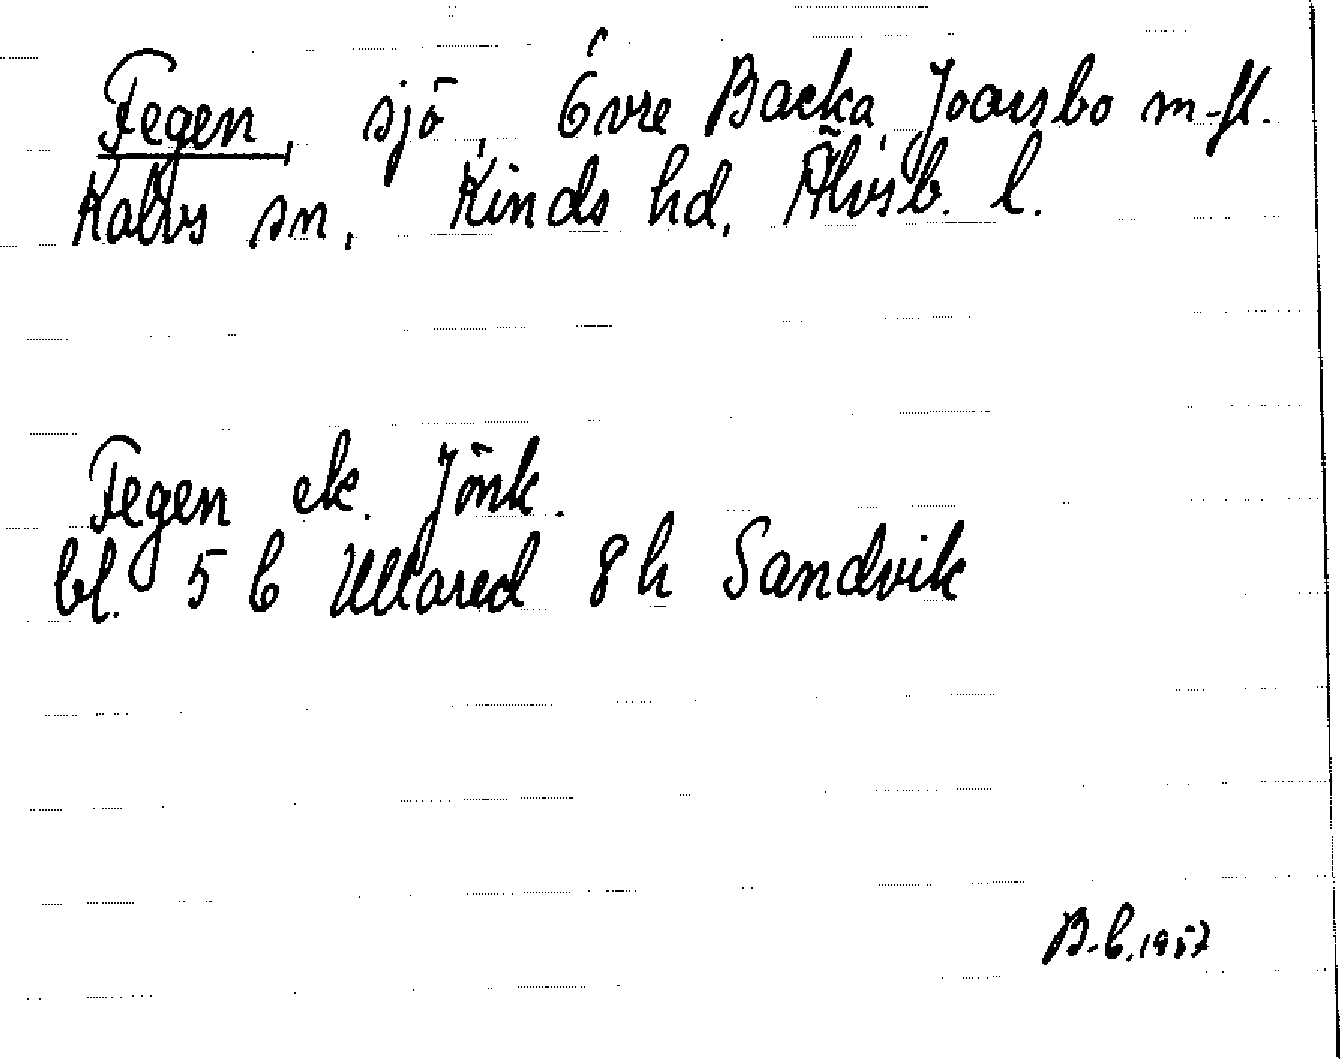 Fegen, sjö, Övre Backa, Joarsbo m.fl.
Kalvs sn, Kinds hd, Älvsb. l.
Fegen ek. Jönk.
bl. 5 C Ullared 8 h Sandvik
B-b. 1957